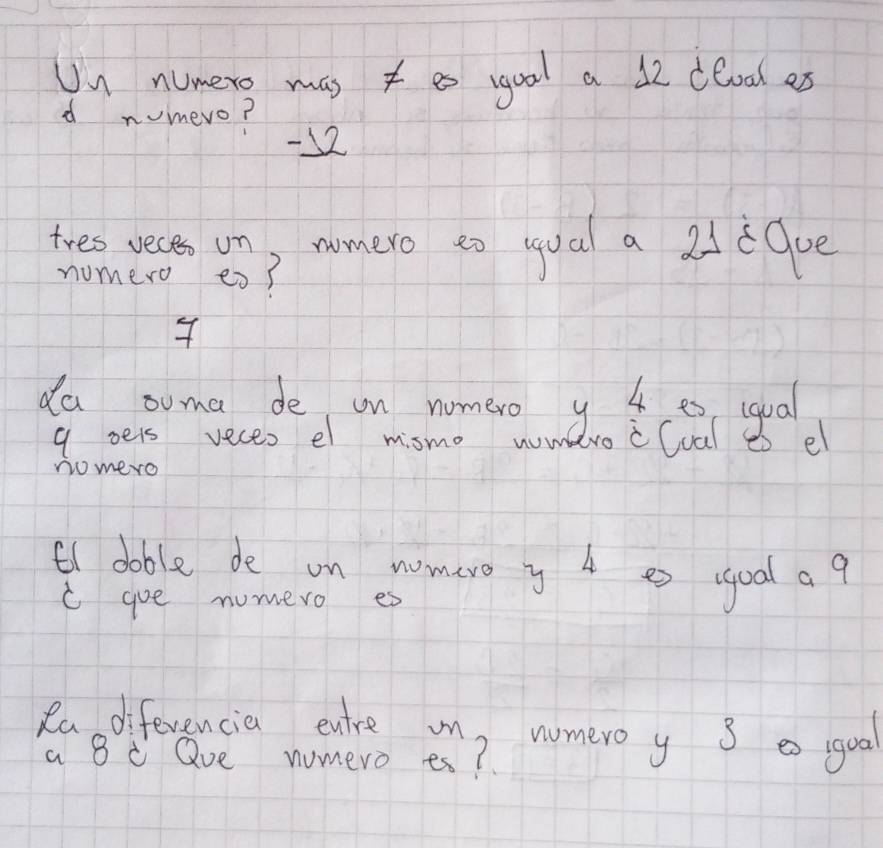 Un numero mas 7 es igual a 12 ¿Cual es
el numero?
-12
tres veces un numero es igual a 21 ¿Que
numero es?
7
La suma de un numero y 4 es igual
a seis veces el mismo numero ¿Cual es el
numero
El doble de un numero y 4 es igual a 9
¿ que numero es
La diferencia entre un numero y 3 es igual
a 8 ¿ Que numero es?